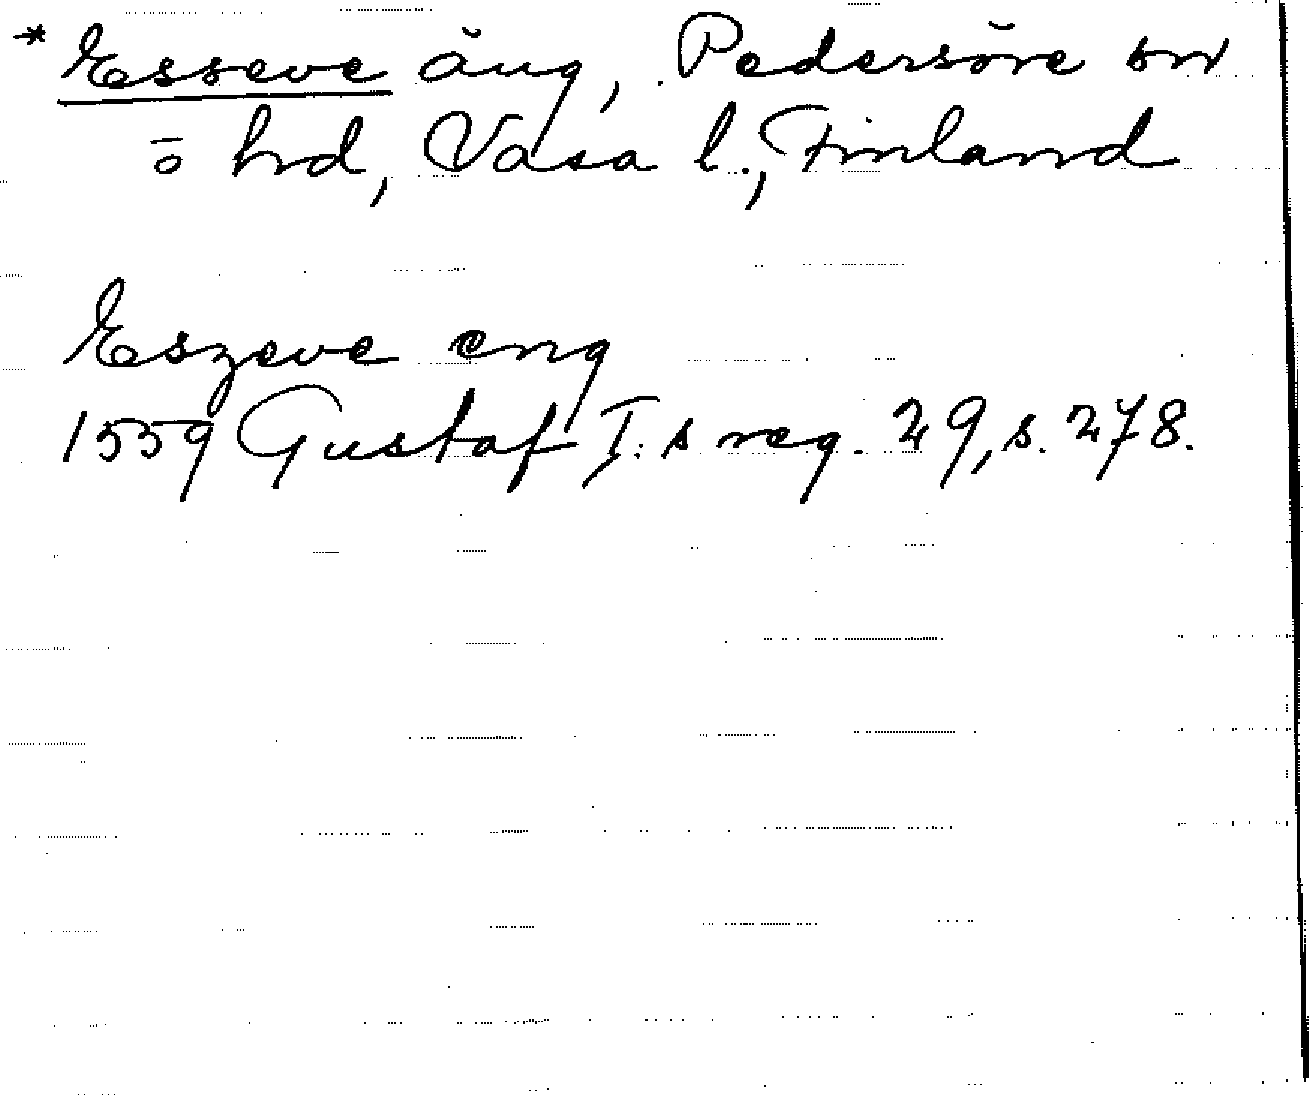 * Esseve äng, Pedersöre sn
o hd, Vasa l., Finland
Eszeve eng
1559 Gustaf I:s reg. 29, s. 278.